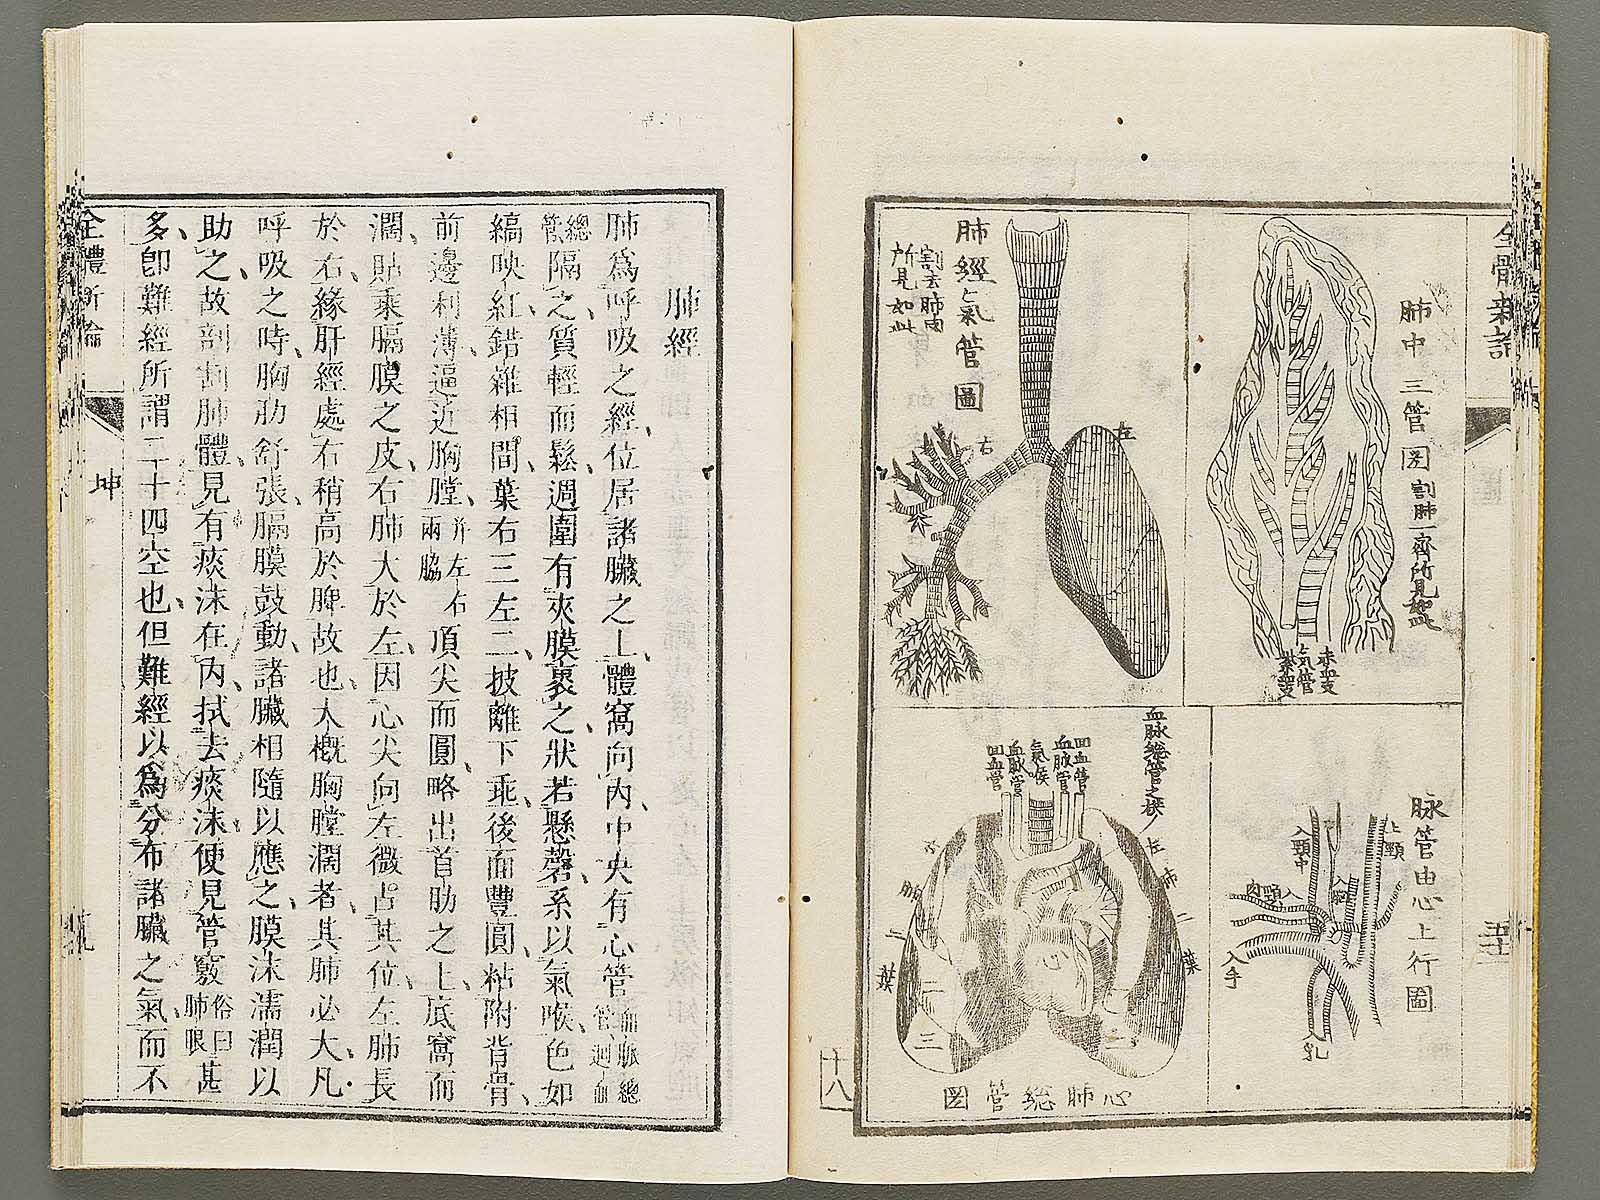 全體新論
肺中三管圖
割肺一齊所見如此
赤血支
気管
紫血支
肺經氣管圖
割去肺肉
所見如此
左
右
脉管由心上行圖
上頸
入頸中
入手
血脉總管之拱
左肺二葉
回血管
血脉管
氣喉
血脉管
回血管
心
一
二
三
心肺總管圖
十八
肺經
肺爲呼吸之經位居諸臟之上體窩向內中央有心管血脈總管迴血
總管隔之質輕而鬆週圍有夾膜裹之狀若懸磬系以氣喉色如
縞映紅錯雜相間葉右三左二披離下乖後面豐圓粘附背骨
前邊利薄逼近胸膛幷左右兩脇頂尖而圓略出首肋之上底窩而
濶貼乘膈膜之皮右肺大於左因心尖向左微占其位左肺長
於右緣肝經處右稍高於脾故也大槪胸膛濶者其肺必大凡
呼吸之時胸肋舒張膈膜鼓動諸臟相隨以應之膜沫濡潤以
助之故剖割肺體見有痰沫在內拭去痰沫便見管竅俗曰肺眼甚
多卽難經所謂二十四空也但難經以爲分布諸臟之氣而不
全體新論
坤